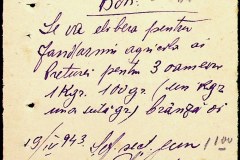 Bon.
Se va elibera pentru
Jandarmii agricoli ai
Preturei pentru 3 oameni
1 Kgr. 100 gr. (un Kgr
una sută gr.) brânză oi
19/IV 943.